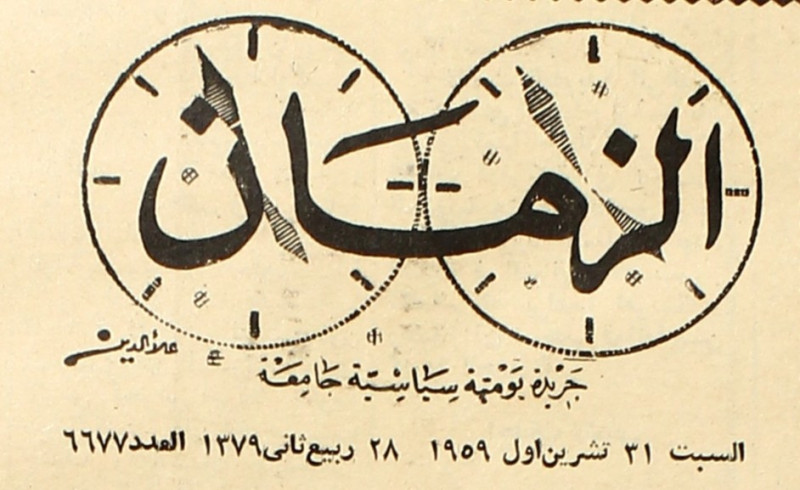 الزمان
علاء الدين
جَريدة يَوميّة سيَاسِيّة جَامِعَة
السبت ٣١ تشرين اول ١٩٥٩ ٢٨ ربيع ثانى ١٣٧٩ العدد ٦٦٧٧